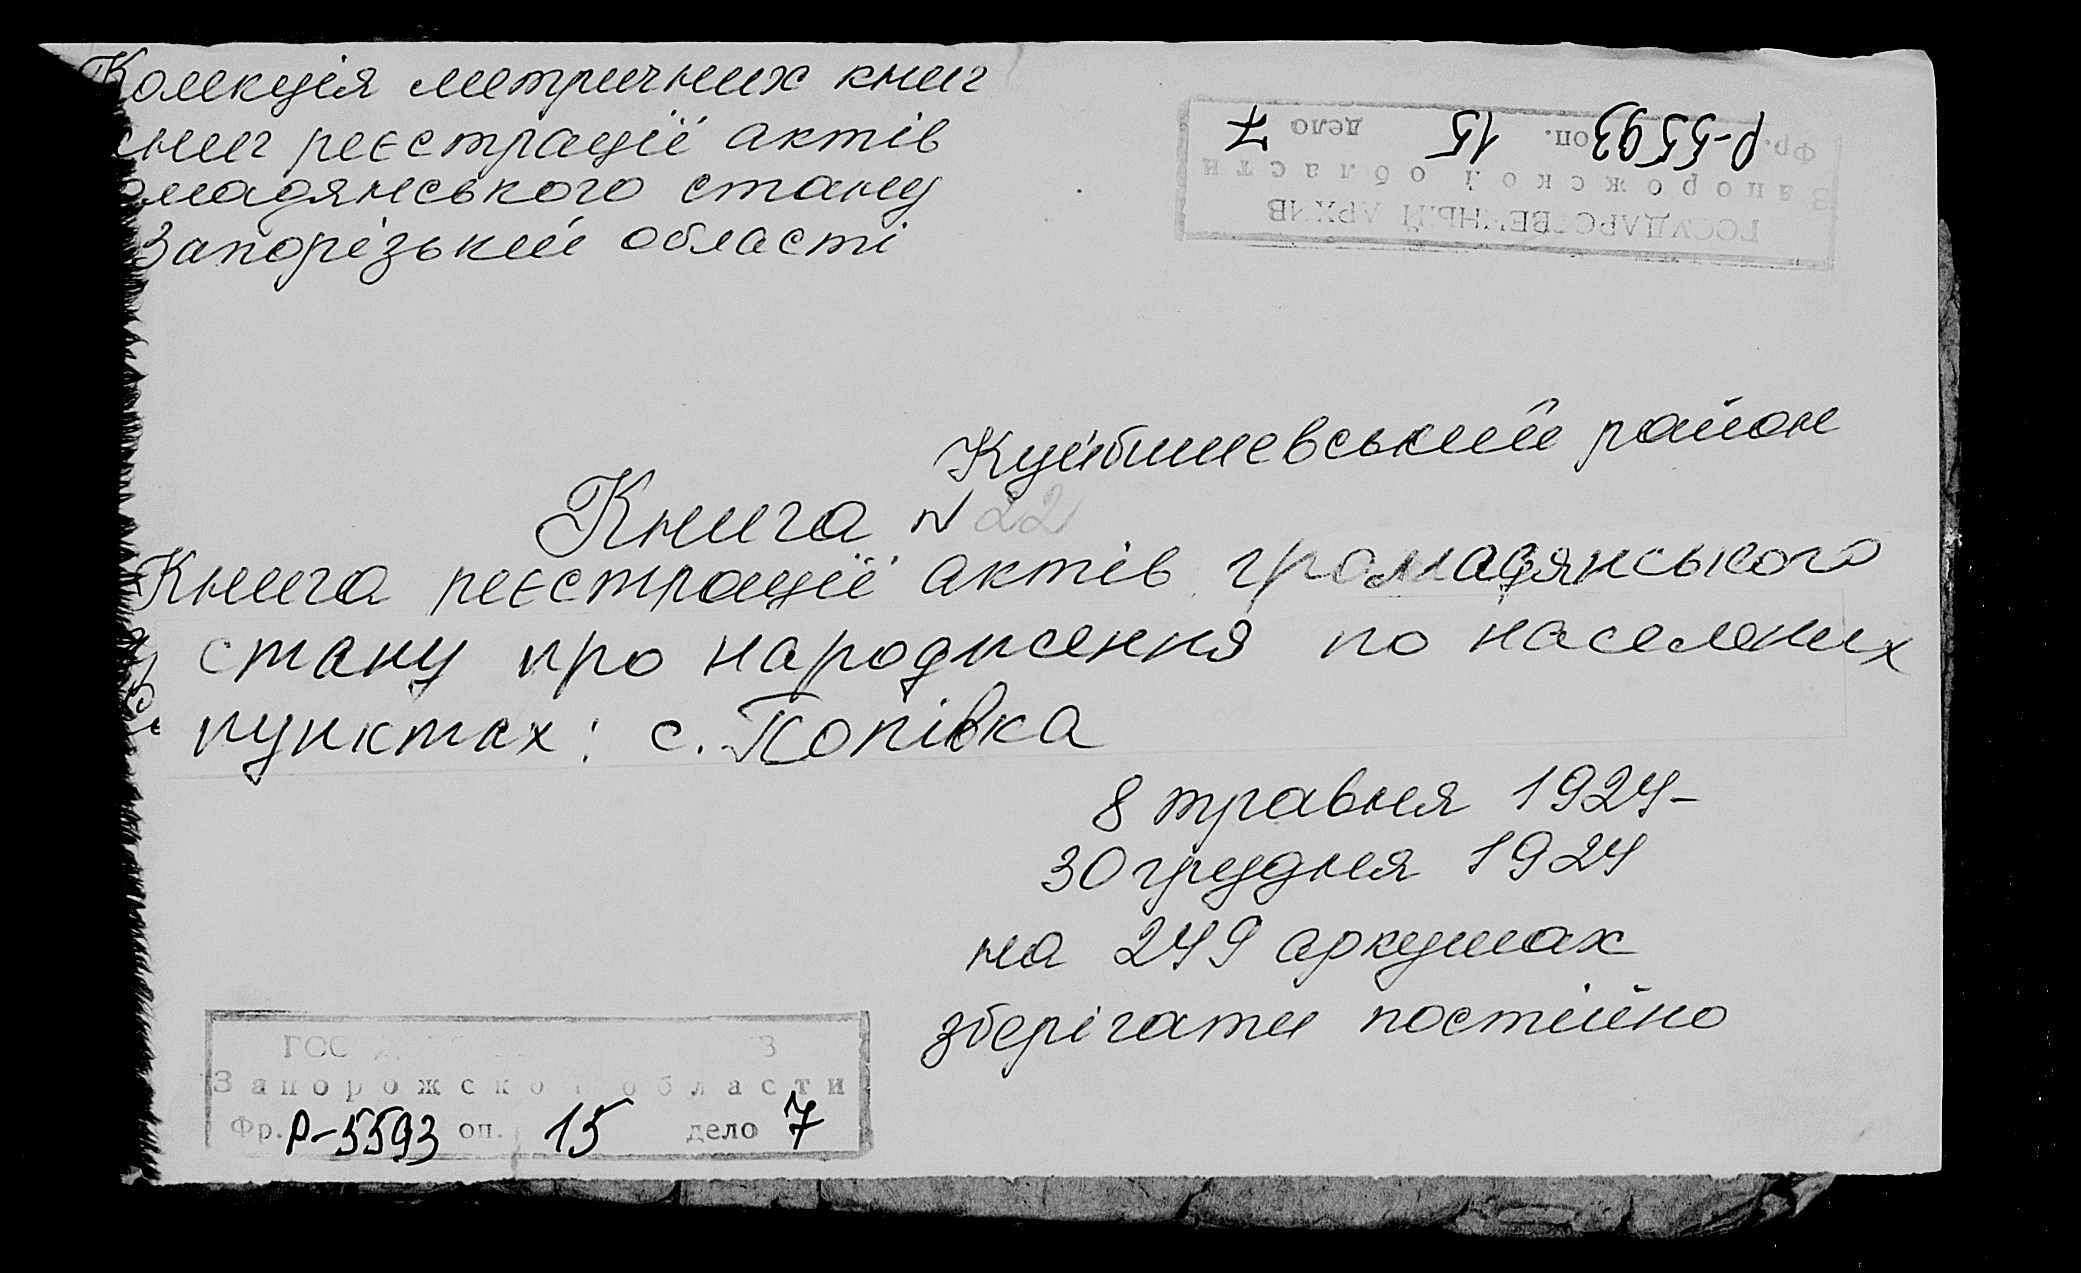 Колекція метричних книг
книг реєстрації актів
омадянського стану
Запорізький області
ГОСУДАРСТВЕННЫЙ АРХИВ
Запорожской области
Фр. Р-5593 оп. 15 дело 7
Куйбишевський район
Книга № 22
Книга реєстрації актів громадянського
стану про народження по населених
пунктах: с. Попівка
8 травня 1924-
30 грудня 1924
на 249 аркушах
зберігати постійно
Запорожской области
Фр. Р-5593 оп. 15 дело 7